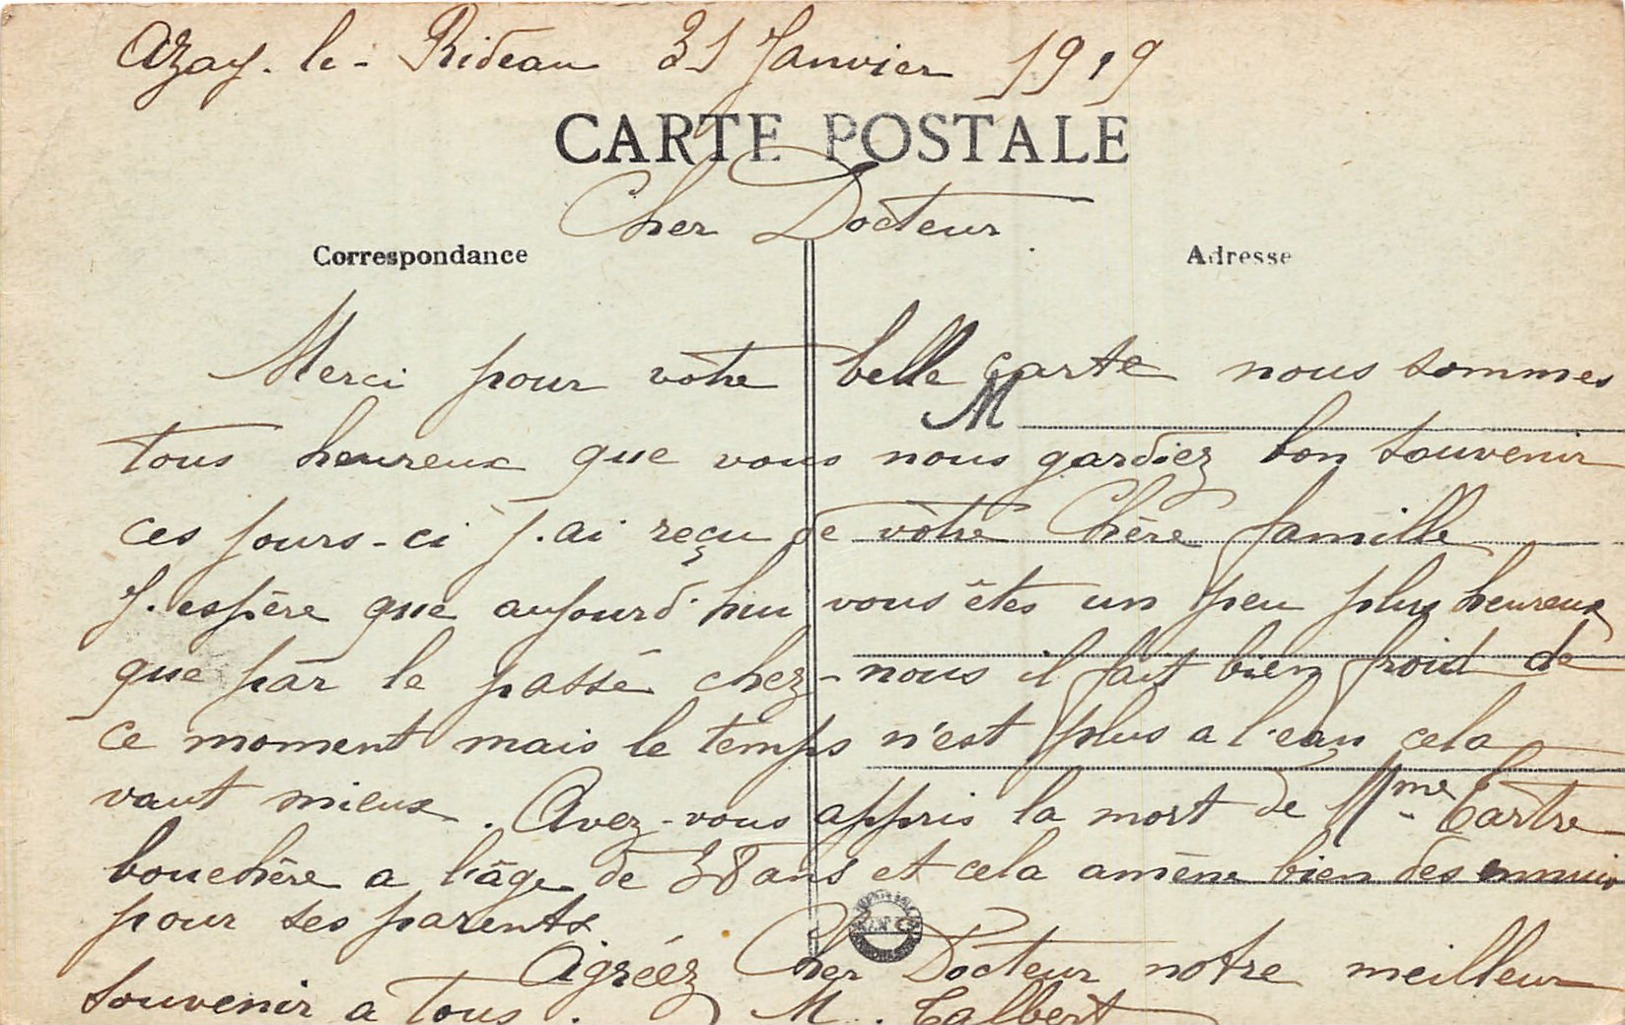 Azay-le-Rideau 31 Janvier 1919
CARTE POSTALE
Cher Docteur
Correspondance
Adresse
Merci pour votre belle carte nous sommes
M
tous heureux que vous nous gardiez bon souvenir
ces jours-ci j'ai reçu de votre Chère famille
J'espère que aujourd'hui vous êtes un peu plus heureux
que par le passé chez-nous il fait bien froid de
ce moment mais le temps n'est plus a l'eau cela
vaut mieux. Avez-vous appris la mort de Mme Tartre
bouchère a l'âge de 38 ans et cela amène bien des ennuis
pour ses parents
Agréez Cher Docteur notre meilleur
souvenir a tous. M. Talbert